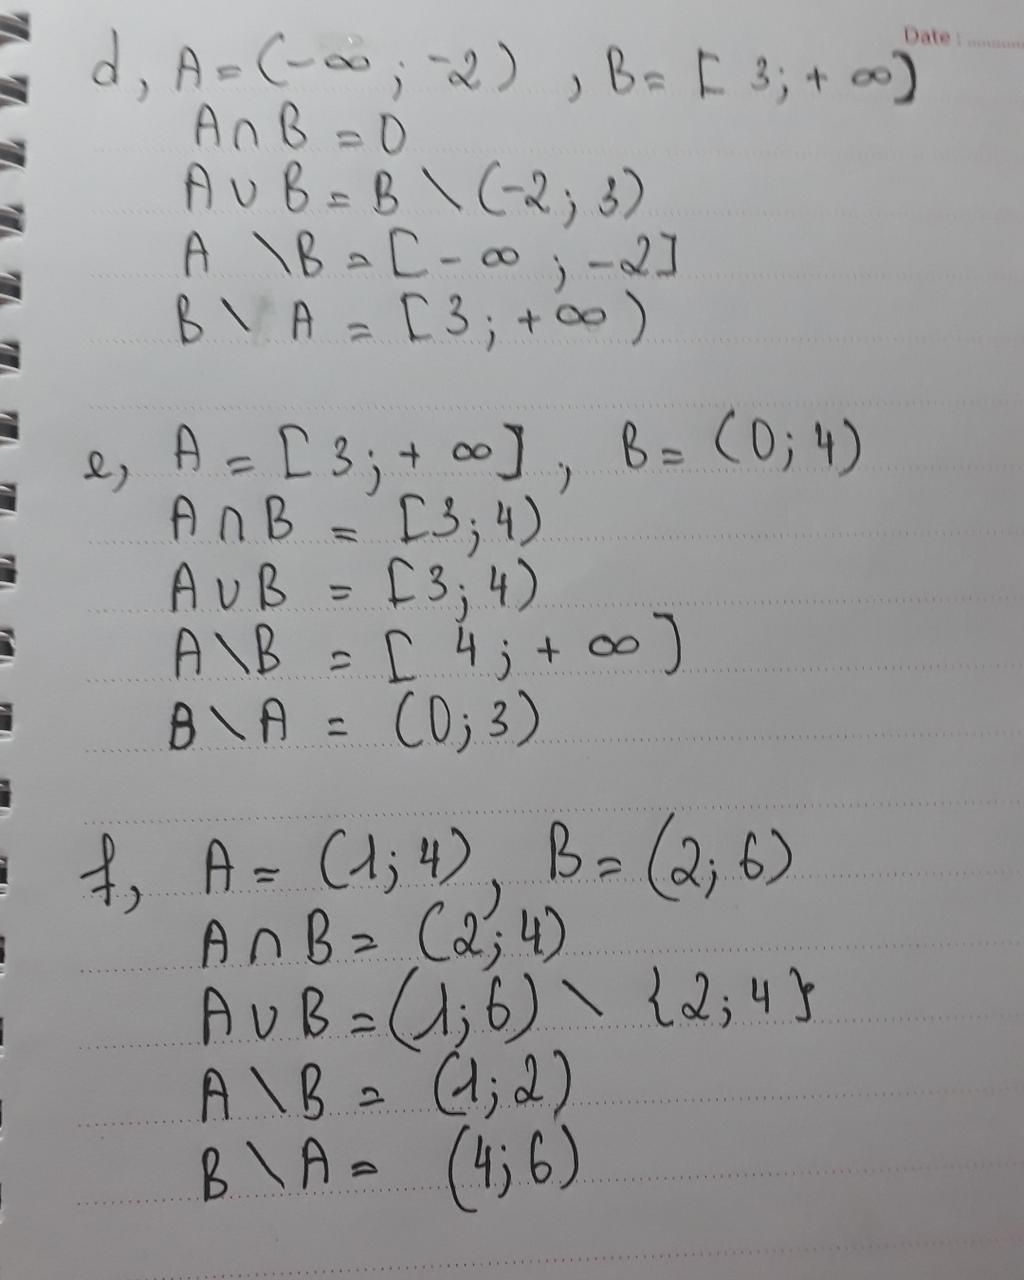 Date : ............
d, A = (-∞ ; -2) , B = [ 3; + ∞)
A ∩ B = 0
A ∪ B = B \ (-2; 3)
A \ B = [ - ∞ ; -2]
B \ A = [3; +∞)
e, A = [ 3; + ∞] , B = (0; 4)
A ∩ B = [3; 4)
A ∪ B = [3; 4)
A \ B = [ 4 ; + ∞ ]
B \ A = (0; 3)
f, A = (1; 4), B = (2; 6)
A ∩ B = (2; 4)
A ∪ B = (1; 6) \ {2; 4}
A \ B = (1; 2)
B \ A = (4; 6)